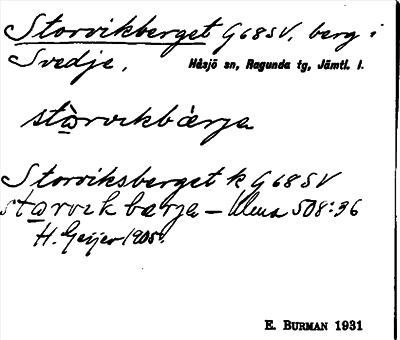 Storvikberget G68SV. berg i
Svedje. Håsjö sn, Ragunda tg, Jämtl. l.
stɷrvikbærja
Storviksberget k G68SV
stɷrvik bærja – Ulena 508:36
H. Geijer 1905.
E. BURMAN 1931